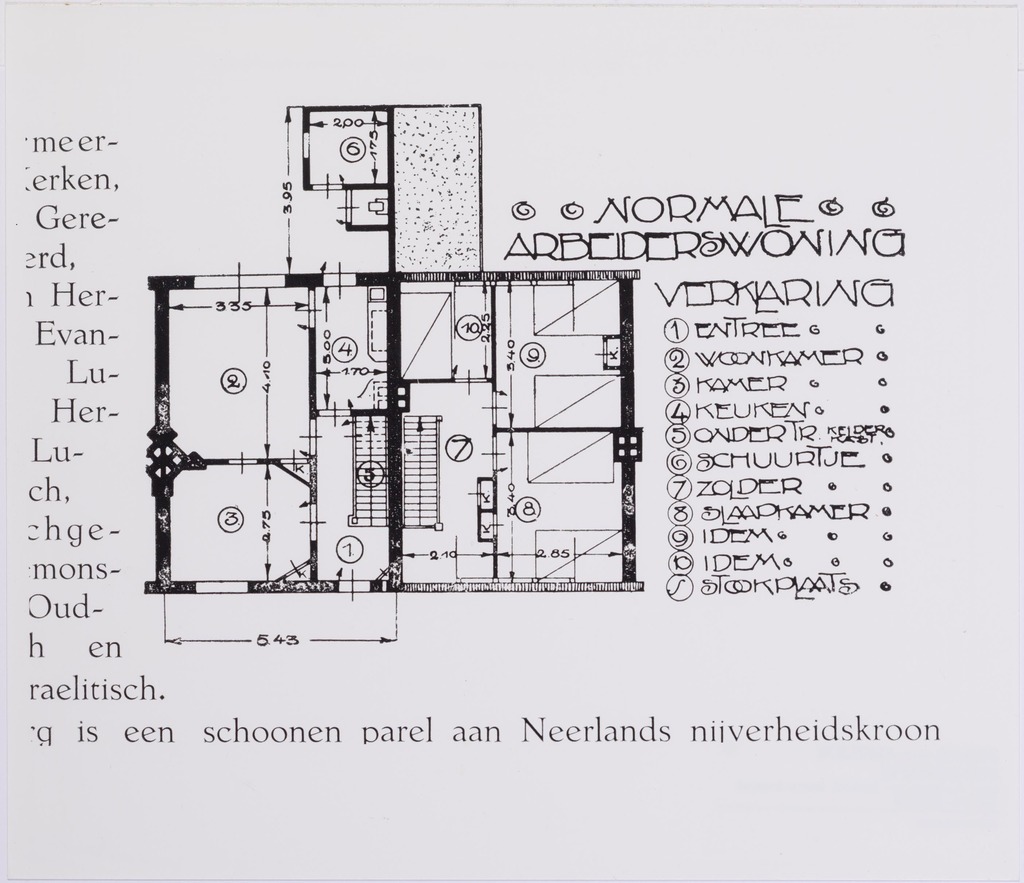 meer-
erken,
Gere-
erd,
Her-
Evan-
Lu-
Her-
Lu-
ch,
chge-
mons-
Oud-
h en
raelitisch.
g is een schoonen parel aan Neerlands nijverheidskroon
NORMALE
ARBEIDERSWONING
VERKLARING
1 ENTREE
2 WOONKAMER
3 KAMER
4 KEUKEN
5 ONDER TR. KELDER
6 SCHUURTJE
7 ZOLDER
8 SLAAPKAMER
9 IDEM
10 IDEM
S STOOKPLAATS
2,00
1.75
6
3.95
3.35
4.10
2
3.00
4
1.70
10
2.25
3.40
9
K
5
7
K
3
2.75
K
K
K
3.40
8
1
2.10
2.85
K
5.43